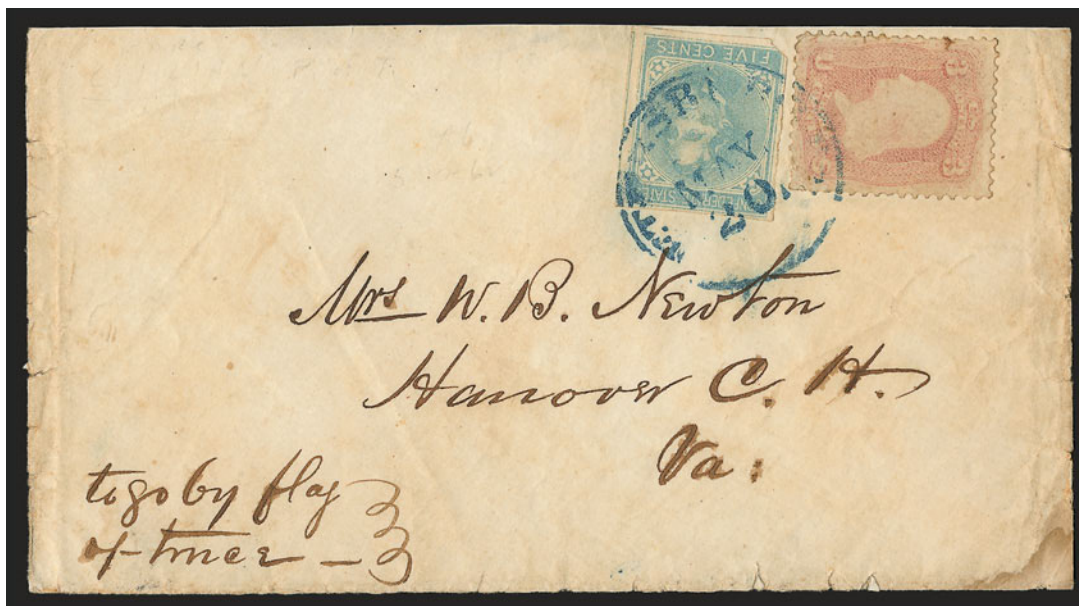 FIVE CENTS
U 3
3
MAY
20
Mrs W. B. Newton
Hanover C. H.
Va:
to go by flag
of truce